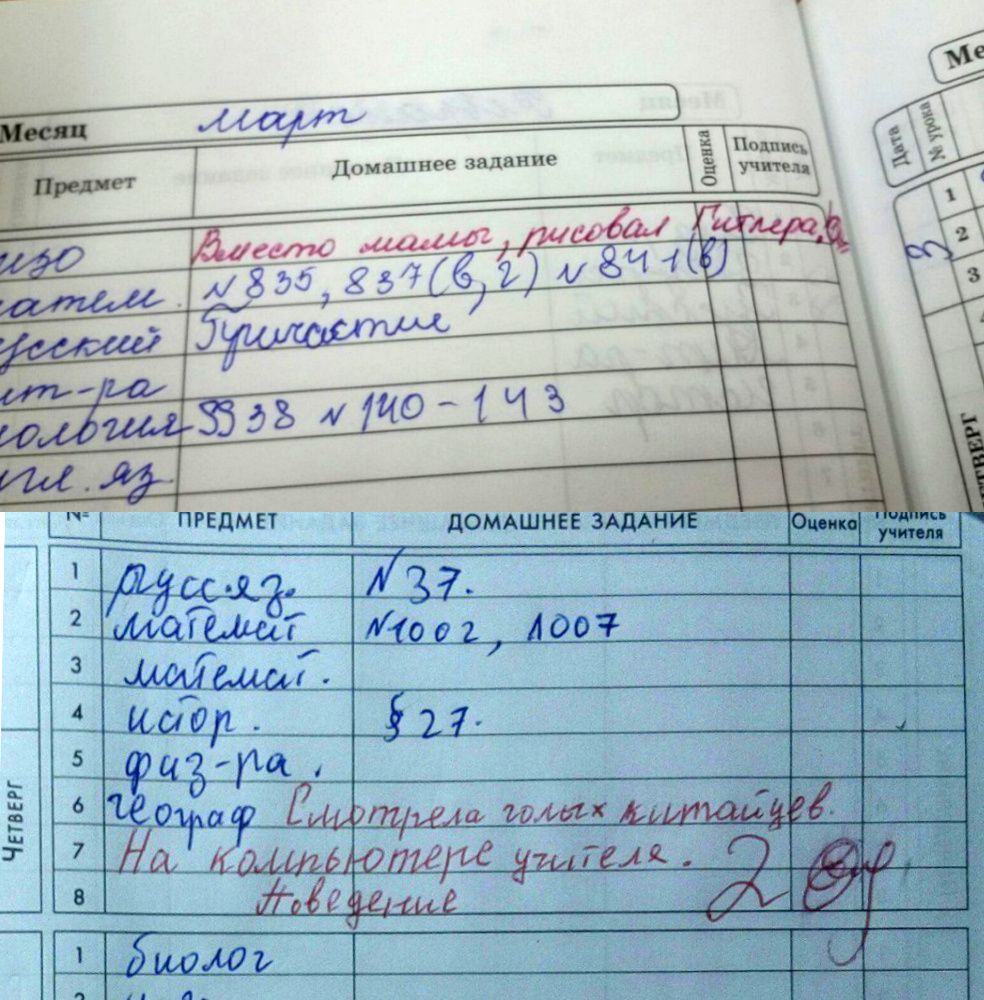 Месяц март
Ме
Предмет Домашнее задание Оценка Подпись учителя
Дата № урока
изо Вместо мамы, рисовал Гитлера
матем. №835, 837(в, г) №841(в)
усский Причастие
ит-ра
иология §§38 №140-143
гл. яз.
1
2
3
3
ТВЕРГ
№ ПРЕДМЕТ ДОМАШНЕЕ ЗАДАНИЕ Оценка Подпись учителя
ЧЕТВЕРГ
1 русс.яз. №37.
2 математ №1002, 1007
3 математ.
4 истор. §27.
5 физ-ра.
6 географ Смотрела голых китайцев.
7 На компьютере учителя. 2
8 Поведение
1 биолог
2